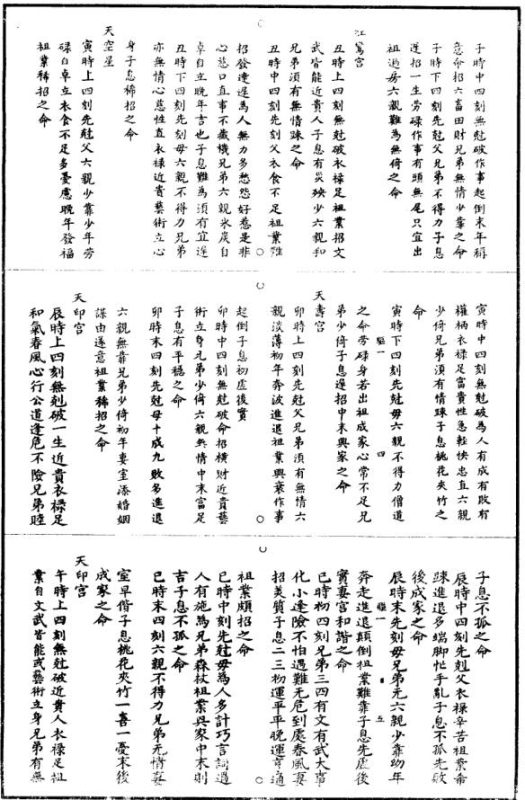 子時中四刻無尅破作事起倒末年稱
意命招六畜田財兄弟無情少靠之命
子時下四刻先尅父兄弟不得力子息
遲招一生勞碌作事有頭無尾只宜出
祖過房六親難為無倚之命
紅鸞宮
丑時上四刻無尅破衣祿足祖業招文
武皆能近貴人子息有災殃少六親和
兄弟須有無情踈之命
丑時中四刻先刻父衣食不足祖業難
招發達遲為人無力多愁怨好惹是非
心慈口直事不藏機兄弟六親氷炭自
卓自立晚年吉也子息難為須有宜遲
丑時下四刻先刻母六親不得力兄弟
亦無情心慈性直衣祿近貴藝術立心
身子息稀招之命
天空星
寅時上四刻先尅父六親少靠少年勞
碌自卓立衣食不足多憂慮晚年發福
祖業稀招之命
寅時中四刻無尅破為人有成有敗有
權柄衣祿足富貴性急輕快忠直六親
少倚兄弟須有情踈子息桃花夾竹之
命
寅時下四刻先尅母六親不得力僧道
之命勞碌身若出祖成家心常不足兄
弟少倚子息遲招中末興家之命
天壽宮
卯時上四刻先尅父兄弟須有無情六
親淡薄初年奔波進退祖業興衰作事
起倒子息初虛後實
卯時中四刻無尅破命招橫財近貴藝
術立身兄弟少倚六親無情中末富足
子息有平穩之命
卯時末四刻先尅母十成九敗多進退
六親無靠兄弟少倚初年妻室添婚姻
謀由遂意祖業稀招之命
天印宮
辰時上四刻無尅破一生近貴衣祿足
和氣春風心行公道逢危不險兄弟睦
子息不孤之命
辰時中四刻先尅父衣祿辛苦祖業希
踈進退多端脚忙手亂子息不孤先敗
後成家之命
辰時末先刻母兄弟无六親少靠幼年
奔走進退顛倒祖業難靠子息先虛後
實妻宮和諧之命
巳時初四刻兄弟三四有文有武大事
化小逢險不怕遇難无危到處春風妻
招美質子息二三初運平平晚運亨通
祖業頗招之命
巳時中刻先尅母為人多計巧言詞遇
人有施為兄弟森杖祖業興家中末則
吉子息不孤之命
巳時末四刻六親不得力兄弟无情妻
室早偕子息桃花夾竹一喜一憂末後
成家之命
天印宮
午時上四刻無尅破近貴人衣祿足祖
業自文武皆能或藝術立身兄弟有無